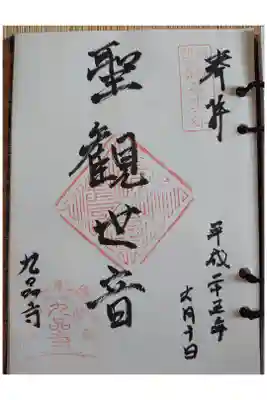 奉拝
平成二十五年
六月十日
聖観世音
九品寺